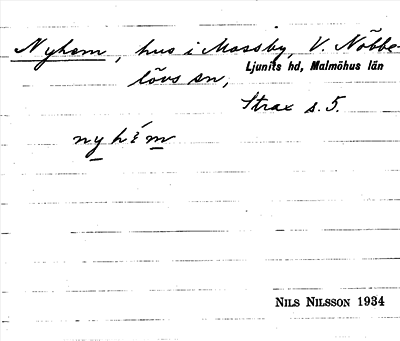 Nyhem, hus i Mossby, V. Nöbbe-
Ljunits hd, Malmöhus län
lövs sn,
Strax s. 5.
nyhḿm
NILS NILSSON 1934